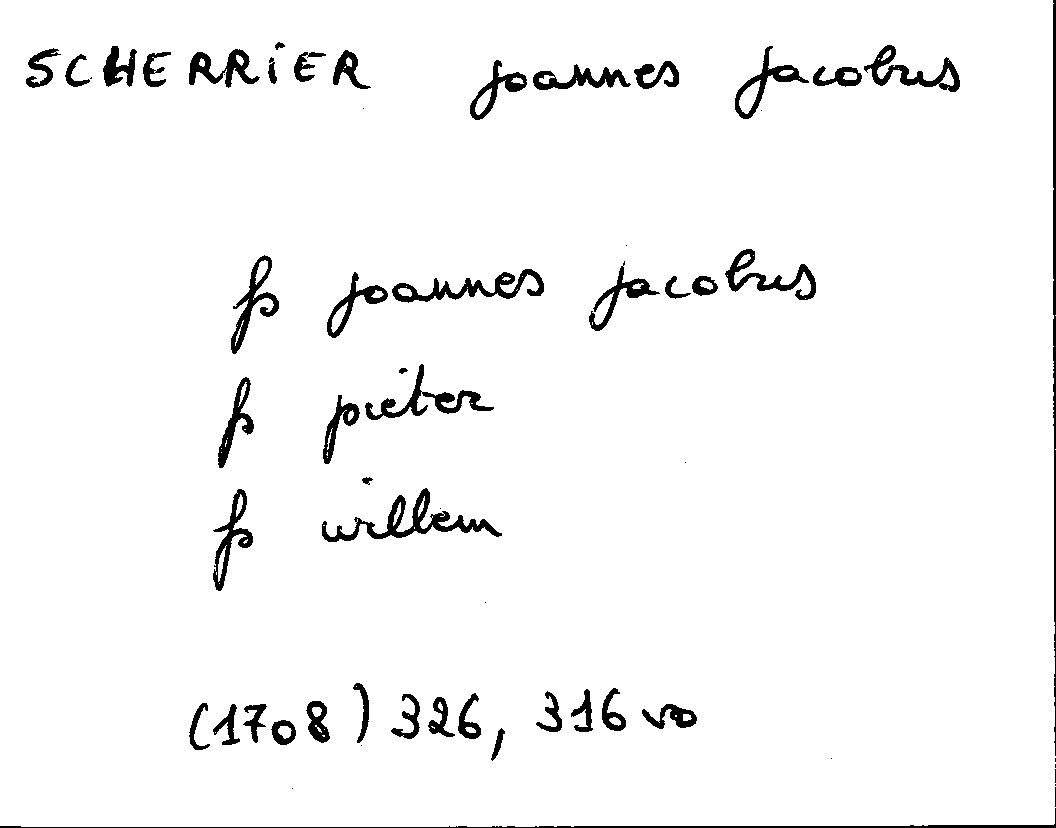 SCHERRIER Joannes Jacobus
fs Joannes Jacobus
fs pieter
fs willem
(1708) 326, 316 vo